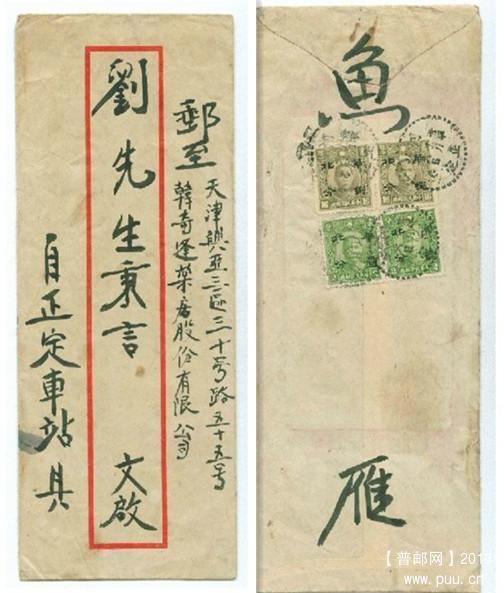 郵至
天津興亞三區三十号路五十五号
韓奇逢藥房股份有限公司
劉先生秉言 文啟
自正定車站具
魚
雁
華北
壹分
【普邮网】201
www.puu.cn